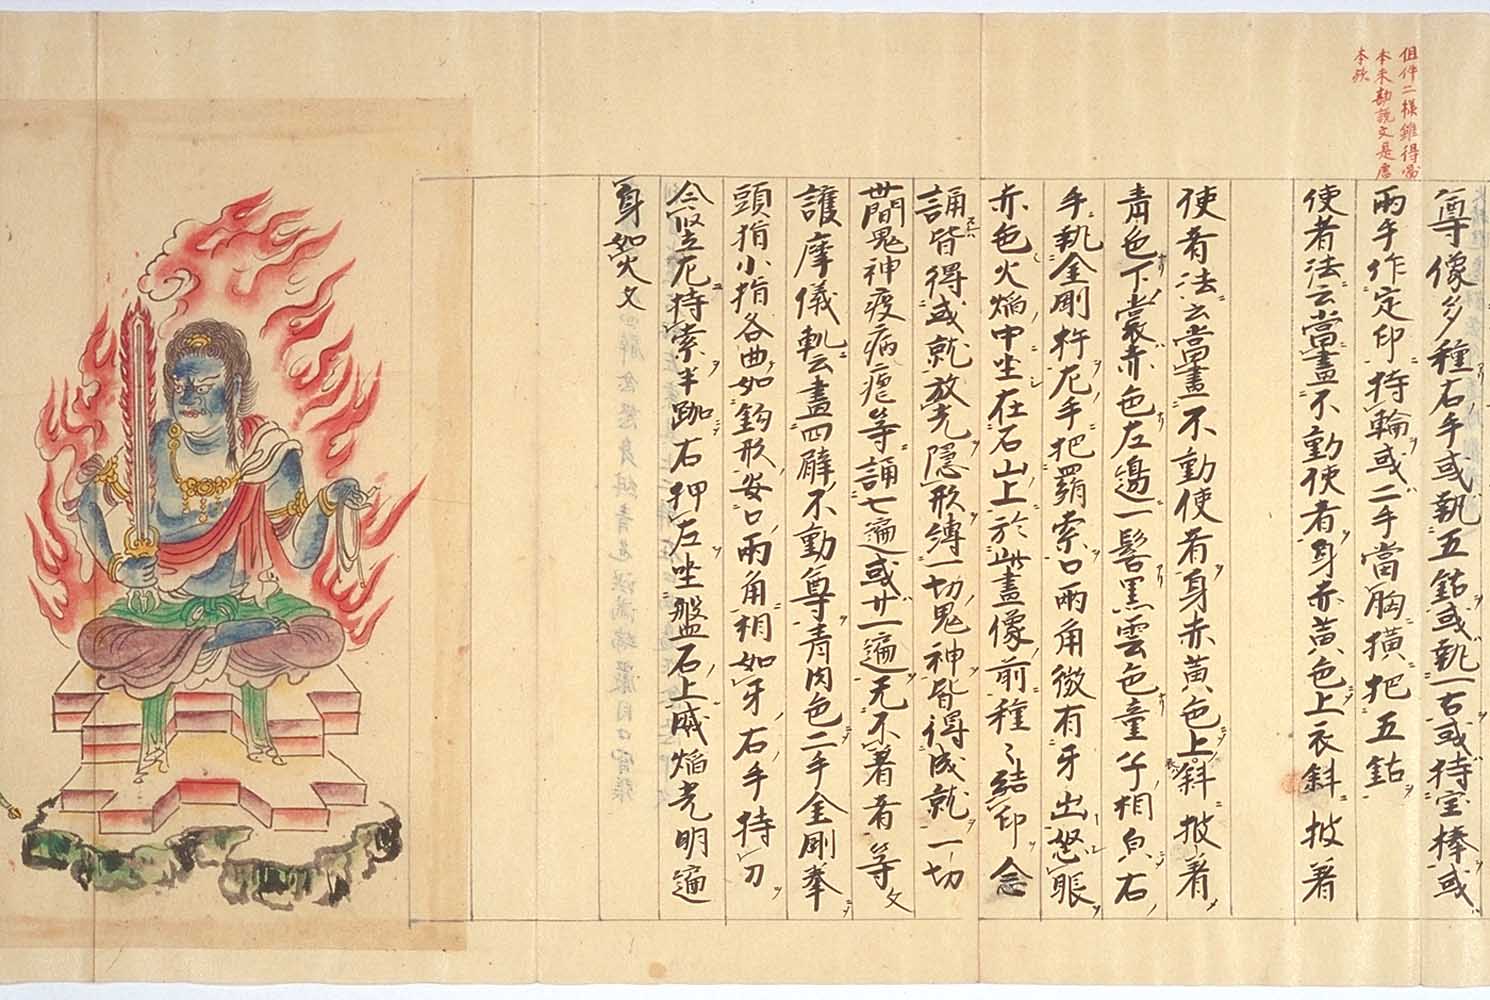 但件二様雖得當
本未勘說文是唐
本歟
尊像多種右手或執五鈷或執一古或持宝棒或
兩手作定印持輪或二手當胸横把五鈷
使者法云當畫不動使者身赤黄色上衣斜披着
使者法云當畫不動使者身赤黄色上衣斜披着
青色下裳赤色左邊一髻黒雲色童子相皃右
手執金剛杵左手把羂索口兩角微有牙出怒眼
赤色火焔中坐在石山上於此畫像前種〻結印念
誦皆得或就放光隱形縛一切鬼神皆得成就一切
世間鬼神疫病瘧等誦七遍或廿一遍无不着者等文
護摩儀軌云畫四臂不動尊青肉色二手金剛拳
頭指小指各曲如鈎形安口兩角相如牙右手持刀
令竪左持索半跏右押左坐盤石上威焔光明遍
身如火文